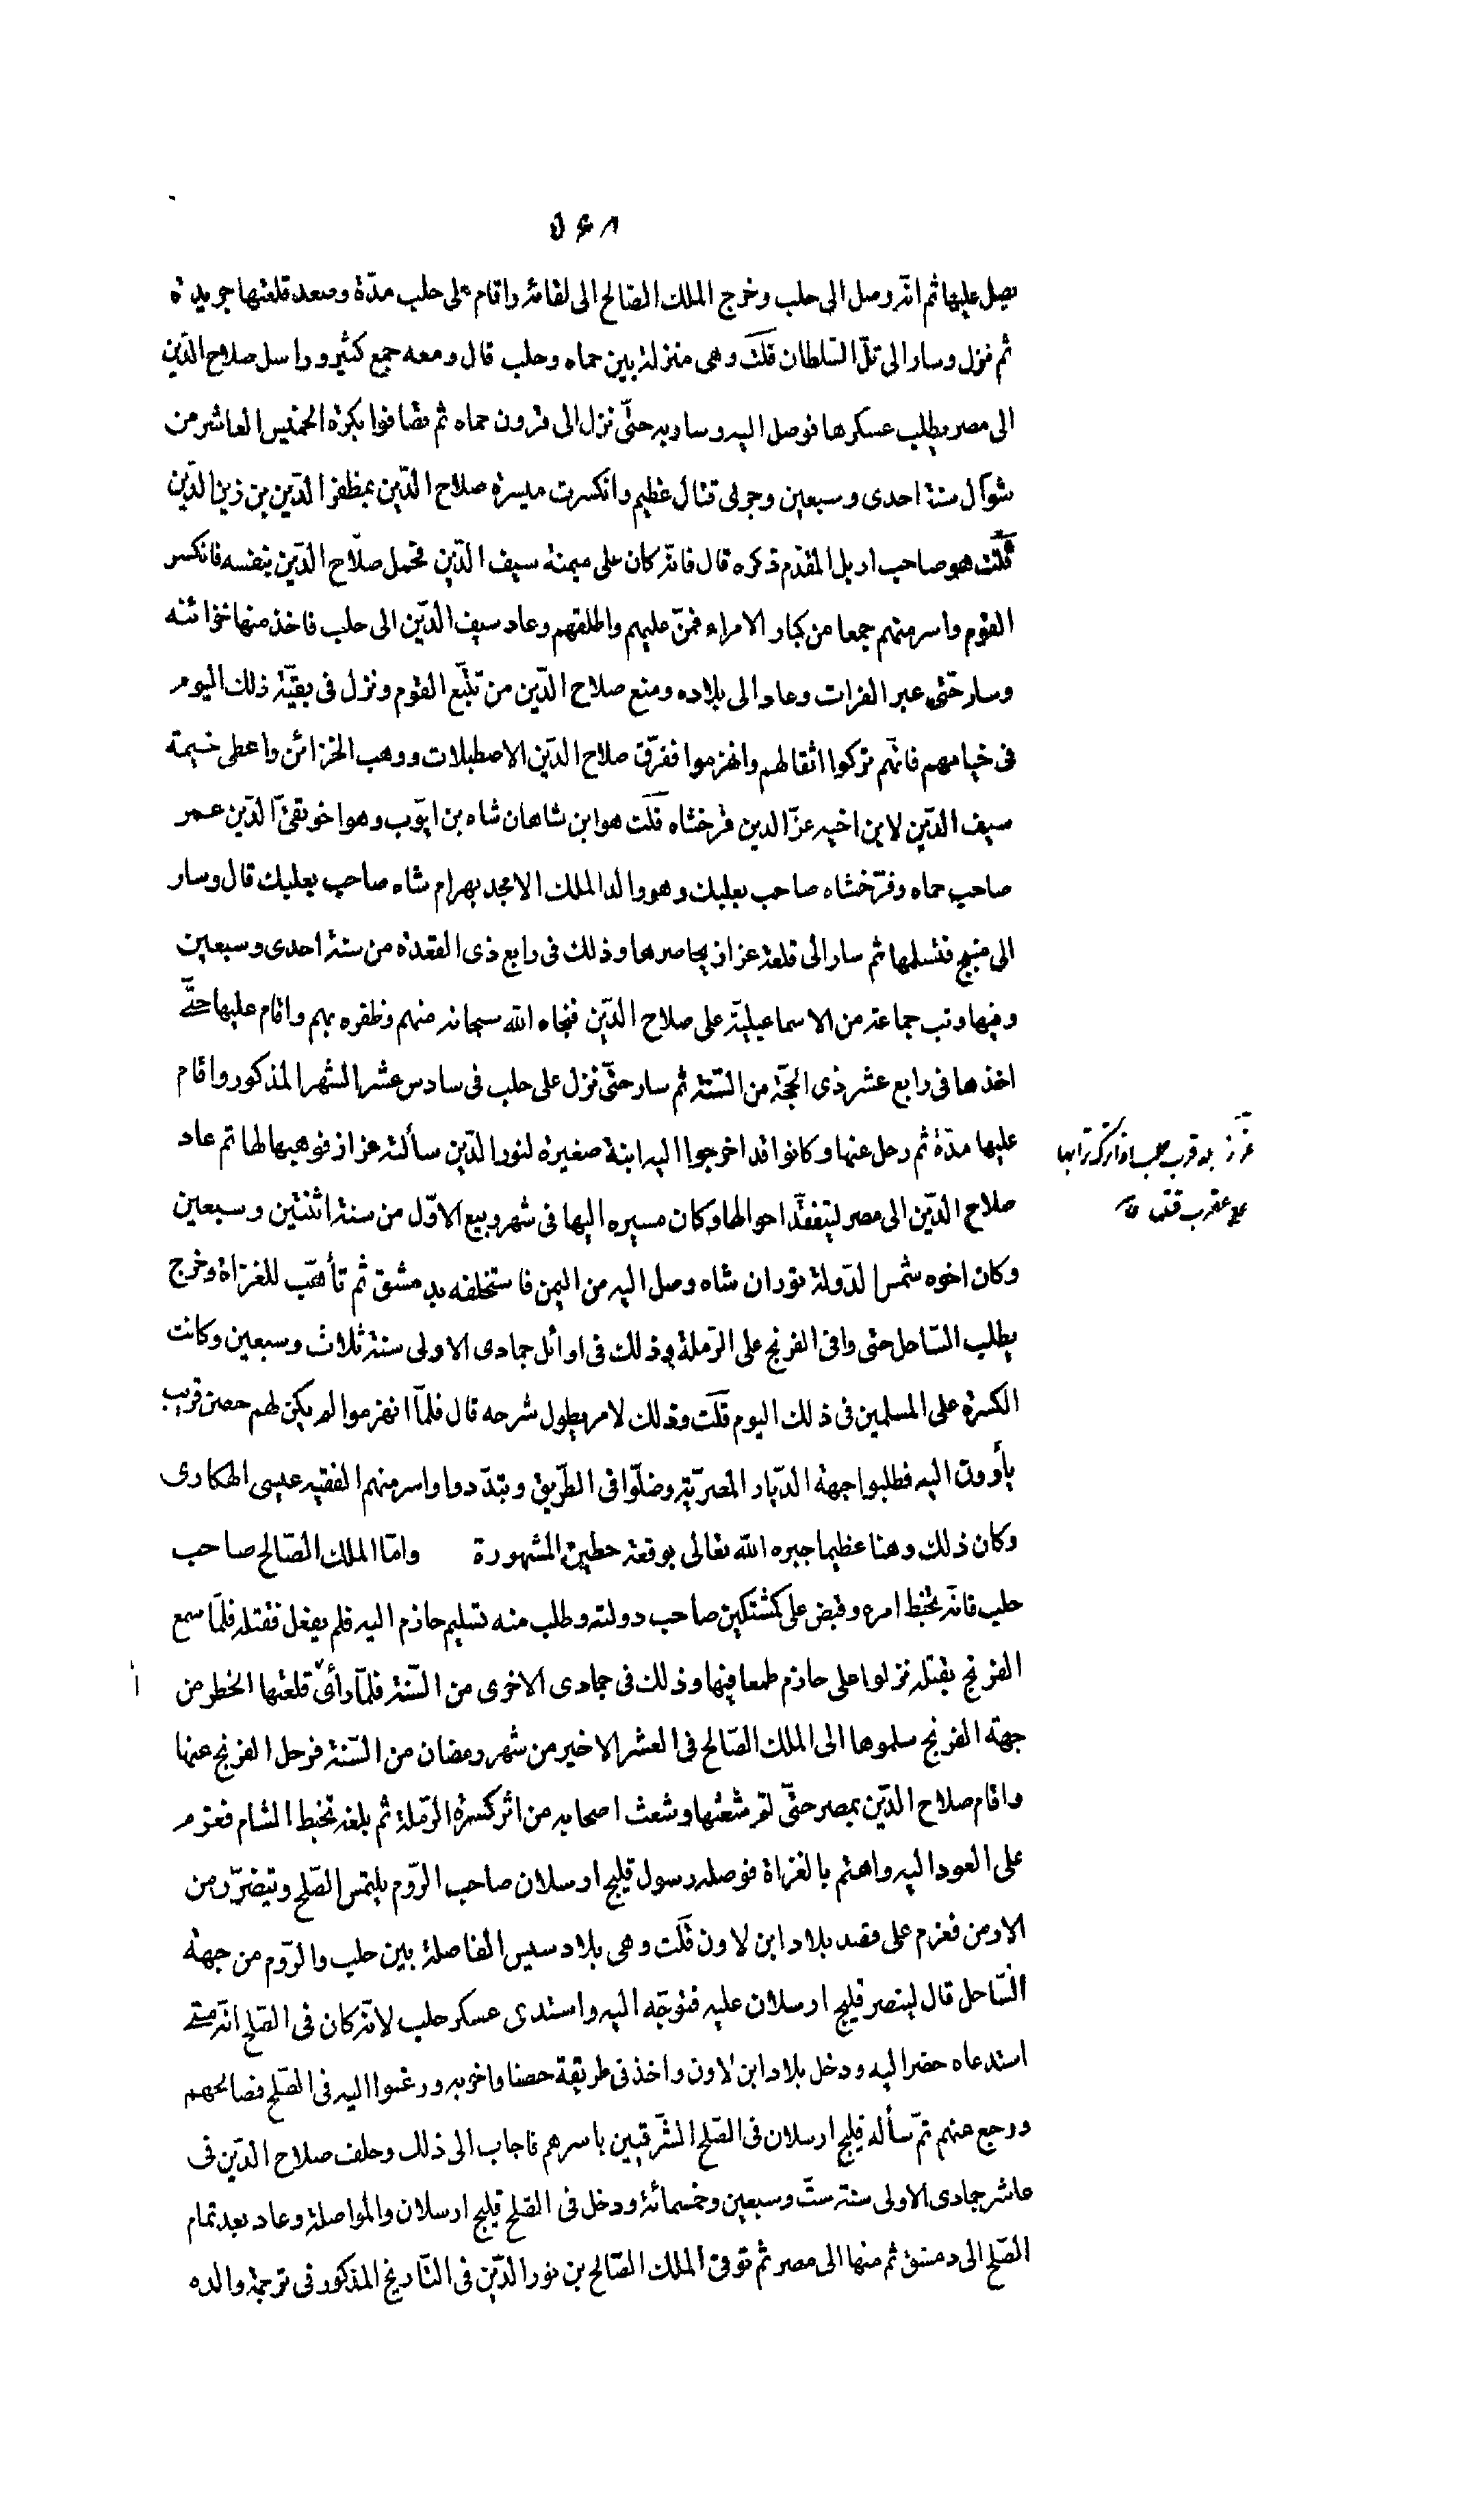 ٥٤٨
يصل عليها ثم انه وصل الى حلب وخرج الملك الصالح الى لقائه واقام على حلب مدّة وصعد قلعتها جريدة
ثم نزل وسار الى تلّ السّلطان قلت وهى منزلة بين حماه وحلب قال ومعه جمع كثير وراسل صلاح الدّين
الى مصر يطلب عسكرها فوصل اليه وسار به حتّى نزل الى قرون حماه ثم تصافوا بكرة الخميس العاشر من
شوّال سنة احدى وسبعين وجرى قتال عظيم وانكسرت ميسرة صلاح الدّين بمظفر الدّين بن زين الدّين
قلت هو صاحب اربل المقدّم ذكره قال فانّه كان على ميمنة سيف الدّين فحمل صلاح الدّين بنفسه فانكسر
القوم واسر منهم جمعا من كبار الامراء فمنّ عليهم واطلقهم وعاد سيف الدّين الى حلب فاخذ منها خزائنه
وسار حتّى عبر الفرات وعاد الى بلاده ومنع صلاح الدّين من تتبّع القوم ونزل فى بقيّة ذلك اليوم
فى خيامهم فانّهم تركوا اثقالهم وانهزموا ففرّق صلاح الدّين الاصطبلات ووهب الخزائن واعطى خيمة
سيف الدّين لابن اخيه عزّ الدين فرخشاه قلت هو ابن شاهان شاه بن ايّوب وهو اخو تقىّ الدّين عمر
صاحب حماه وفرّخشاه صاحب بعلبك وهو والد الملك الامجد بهرام شاه صاحب بعلبك قال وسار
الى منبج فتسلمها ثم سار الى قلعة عزاز يحاصرها وذلك فى رابع ذى القعدة من سنة احدى وسبعين
وفيها وثب جماعة من الاسماعيليّة على صلاح الدّين فنجاه الله سبحانه منهم وظفره بهم واقام عليها حتّى
اخذها فى رابع عشر ذى الحجّة من السّنة ثم سار حتّى نزل على حلب فى سادس عشر الشهر المذكور واقام
عليها مدّة ثم رحل عنها وكانوا قد اخرجوا اليه ابنة صغيرة لنور الدّين سألته عزاز فوهبها لها ثم عاد
صلاح الدّين الى مصر ليتفقّد احوالها وكان مسيره اليها فى شهر ربيع الاوّل من سنة اثنتين وسبعين
وكان اخوه شمس الدّولة توران شاه وصل اليه من اليمن فاستخلفه بدمشق ثم تأهّب للغزاة وخرج
يطلب السّاحل حتى وافى الفرنج على الرّملة وذلك فى اوائل جمادى الاولى سنة ثلاث وسبعين وكانت
الكسرة على المسلمين فى ذلك اليوم قلت وذلك لامر يطول شرحه قال فلمّا انهزموا لم يكن لهم حصن قريب
يأوون اليه فطلبوا جهة الدّيار المصريّة وضلّوا فى الطّريق وتبدّدوا واسر منهم الفقيه عيسى الهكارى
وكان ذلك وهنا عظيما جبره الله تعالى بوقعة حطين المشهورة وامّا الملك الصّالح صاحب
حلب فانّه تخبّط امره وقبض على كمشتكين صاحب دولته وطلب منه تسليم حارم اليه فلم يفعل فقتله فلمّا سمع
الفرنج بقتله نزلوا على حارم طمعا فيها وذلك فى جمادى الاخرى من السّنة فلمّا رأى قلعتها الخطر من
جهة الفرنج سلموها الى الملك الصّالح فى العشر الاخير من شهر رمضان من السّنة فرحل الفرنج عنها
واقام صلاح الدّين بمصر حتّى لمّ شعثها وشعث اصحابه من اثر كسرة الرّملة ثم بلغه تخبط الشام فعزم
على العود اليه واهتم بالغزاة فوصله رسول قليج ارسلان صاحب الرّوم يلتمس الصّلح ويتضرّر من
الارمن فعزم على قصد بلاد ابن لاون قلت وهى بلاد سيس الفاصلة بين حلب والرّوم من جهة
السّاحل قال لينصر قليج ارسلان عليه فتوجّه اليه واستدى عسكر حلب لانّه كان فى الصّلح انّه متى
استدعاه حضر اليه ودخل بلاد ابن لاون واخذ فى طريقه حصنا واخربه ورغبوا اليه فى الصّلح فصالحهم
ورجع عنهم ثمّ سأله قليج ارسلان فى الصّلح الشّرقيين باسرهم فاجاب الى ذلك وحلف صلاح الدّين فى
عاشر جمادى الاولى سنة ستّ وسبعين وخمسمائة ودخل فى الصّلح قليج ارسلان والمواصلة وعاد بعد تمام
الصّلح الى دمشق ثم منها الى مصر ثم توفى الملك الصّالح بن نور الدّين فى التّاريخ المذكور فى ترجمة والده
عزز بلد قرب حلب اذا ترك ترابها
على عقرب قتلها